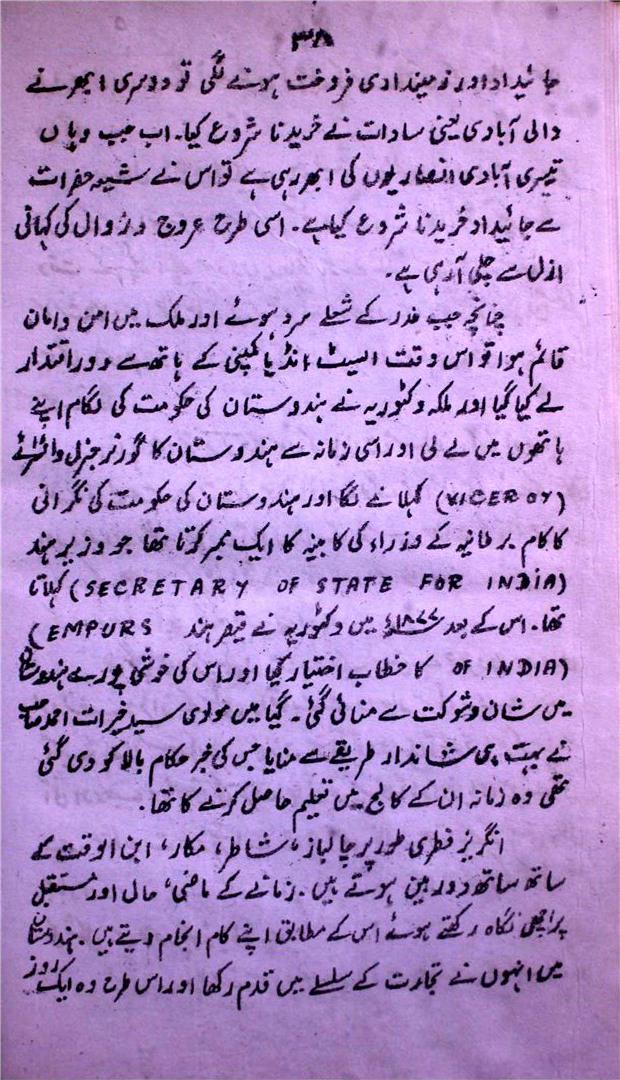 ۳۸
جائیداد اور زمینداری فروخت ہونے لگی تو دوسری ابھرنے
والی آبادی یعنی سادات نے خریدنا شروع کیا۔ اب جب وہاں
تیسری آبادی انصاریوں کی ابھر رہی ہے تو اس نے شیعہ حضرات
سے جائیداد خریدنا شروع کیا ہے۔ اسی طرح عروج و زوال کی کہانی
ازل سے چلی آ رہی ہے۔
چنانچہ جب غدر کے شعلے سرد ہوئے اور ملک میں امن و امان
قائم ہوا تو اس وقت ایسٹ انڈیا کمپنی کے ہاتھ سے دور اقتدار
لے لیا گیا اور ملکہ وکٹوریہ نے ہندوستان کی حکومت کی لگام اپنے
ہاتھوں میں لے لی اور اسی زمانہ سے ہندوستان کا گورنر جنرل وائسرائے
(VICEROY) کہلانے لگا اور ہندوستان کی حکومت کی نگرانی
کا کام برطانیہ کے وزراء کی کابینہ کا ایک ممبر کرتا تھا جو وزیر ہند
(SECRETARY OF STATE FOR INDIA) کہلاتا
تھا۔ اس کے بعد ۱۸۷۷ء میں وکٹوریہ نے قیصر ہند (EMPURS
OF INDIA) کا خطاب اختیار کیا اور اس کی خوشی پورے ہندوستان
میں شان و شوکت سے منائی گئی۔ گیا میں مولوی سید خیرات احمد صاحب
نے بہت ہی شاندار طریقے سے منایا جس کی خبر حکام بالا کو دی گئی
تھی وہ زمانہ ان کے کالج میں تعلیم حاصل کرنے کا تھا۔
انگریز فطری طور پر چالباز، شاطر، مکار، ابن الوقت کے
ساتھ ساتھ دوربین ہوتے ہیں۔ زمانے کے ماضی، حال اور مستقبل
پر اچھی نگاہ رکھتے ہوئے اس کے مطابق اپنے کام انجام دیتے ہیں۔ ہندوستان
میں انہوں نے تجارت کے سلسلے میں قدم رکھا اور اس طرح وہ ایک روز